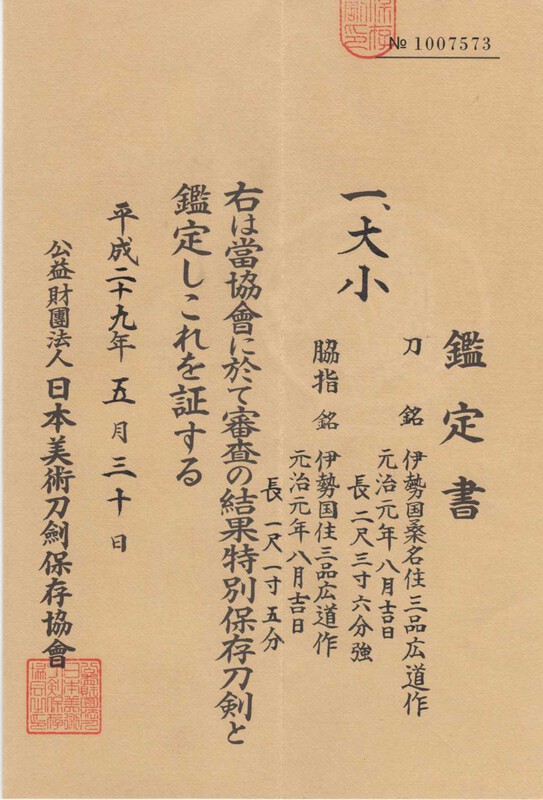 № 1007573
鑑定書
一、大小
刀 銘 伊勢国桑名住三品広道作
元治元年八月吉日
長 二尺三寸六分強
脇指 銘 伊勢国住三品広道作
元治元年八月吉日
長 一尺一寸五分
右は當協會に於て審査の結果特別保存刀剣と
鑑定しこれを証する
平成二十九年五月三十日
公益財團法人日本美術刀劍保存協會